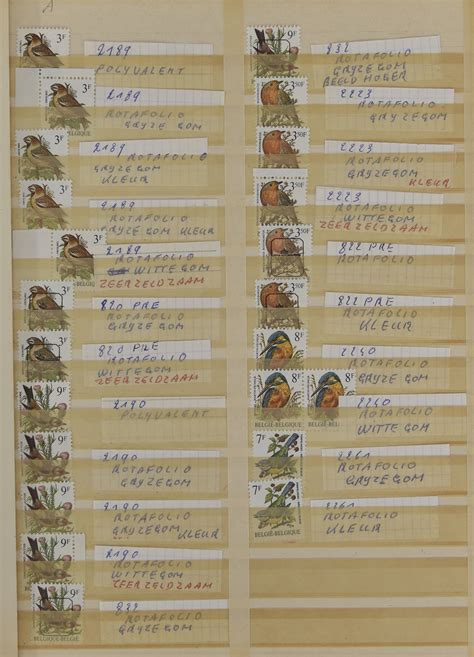 A
3F
2189
POLYVALENT
3F
BELGIQUE
2189
ROTAFOLIO
GRYZE GOM
3F
2189
ROTAFOLIO
GRYZEGOM
KLEUR
3F
2189
ROTAFOLIO
GRYZEGOM KLEUR
3F
2189
ROTAFOLIO
WITTEGOM
ZEER ZELDZAAM
3F
820 PRE
ROTAFOLIO
GRYZEGOM
3F
820 PRE
ROTAFOLIO
WITTEGOM
ZEER ZELDZAAM
9F
2190
POLYVALENT
9F
2190
ROTAFOLIO
GRYZEGOM
9F
2190
ROTAFOLIO
GRYZEGOM
KLEUR
9F
2190
ROTAFOLIO
WITTEGOM
ZEER ZELDZAAM
ROTAFOLIO
GRYZE GOM
9F
832
ROTAFOLIO
GRYZEGOM
BEELD HOGER
350F
2223
ROTAFOLIO
GRYZEGOM
350F
2223
ROTAFOLIO
GRYZEGOM
KLEUR
350F
2223
ROTAFOLIO
WITTEGOM
ZEER ZELDZAAM
350F
822 PRE
ROTAFOLIO
350F
822 PRE
ROTAFOLIO
KLEUR
8F
2240
ROTAFOLIO
GRYZE GOM
8F 8F
BELGIË-BELGIQUE
2240
ROTAFOLIO
WITTE GOM
7F
BELGIE-BELGIQUE
2261
ROTAFOLIO
GRYZEGOM
7F
BELGIË-BELGIQUE
2261
ROTAFOLIO
KLEUR